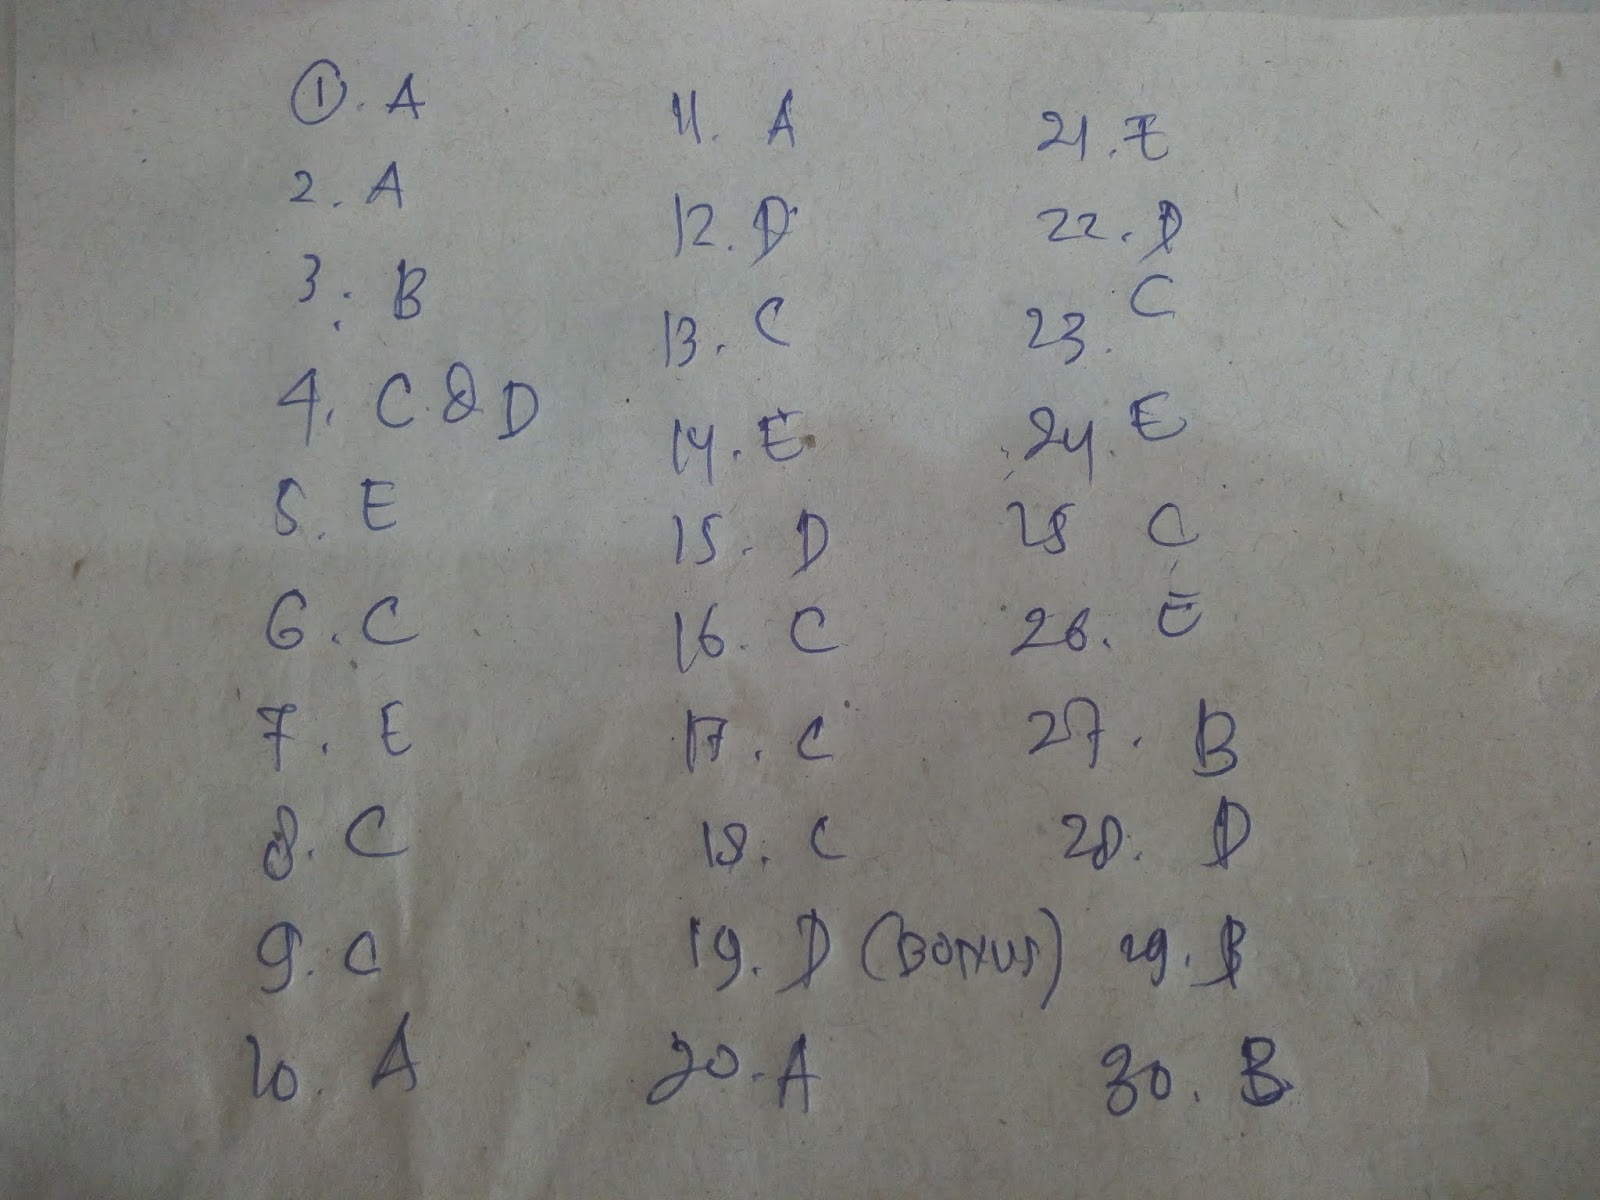 1. A
2. A
3. B
4. C & D
5. E
6. C
7. E
8. C
9. C
10. A
11. A
12. D
13. C
14. E
15. D
16. C
17. C
18. C
19. D (BONUS)
20. A
21. E
22. D
23. C
24. E
25 C
26. E
27. B
28. D
29.
30. B